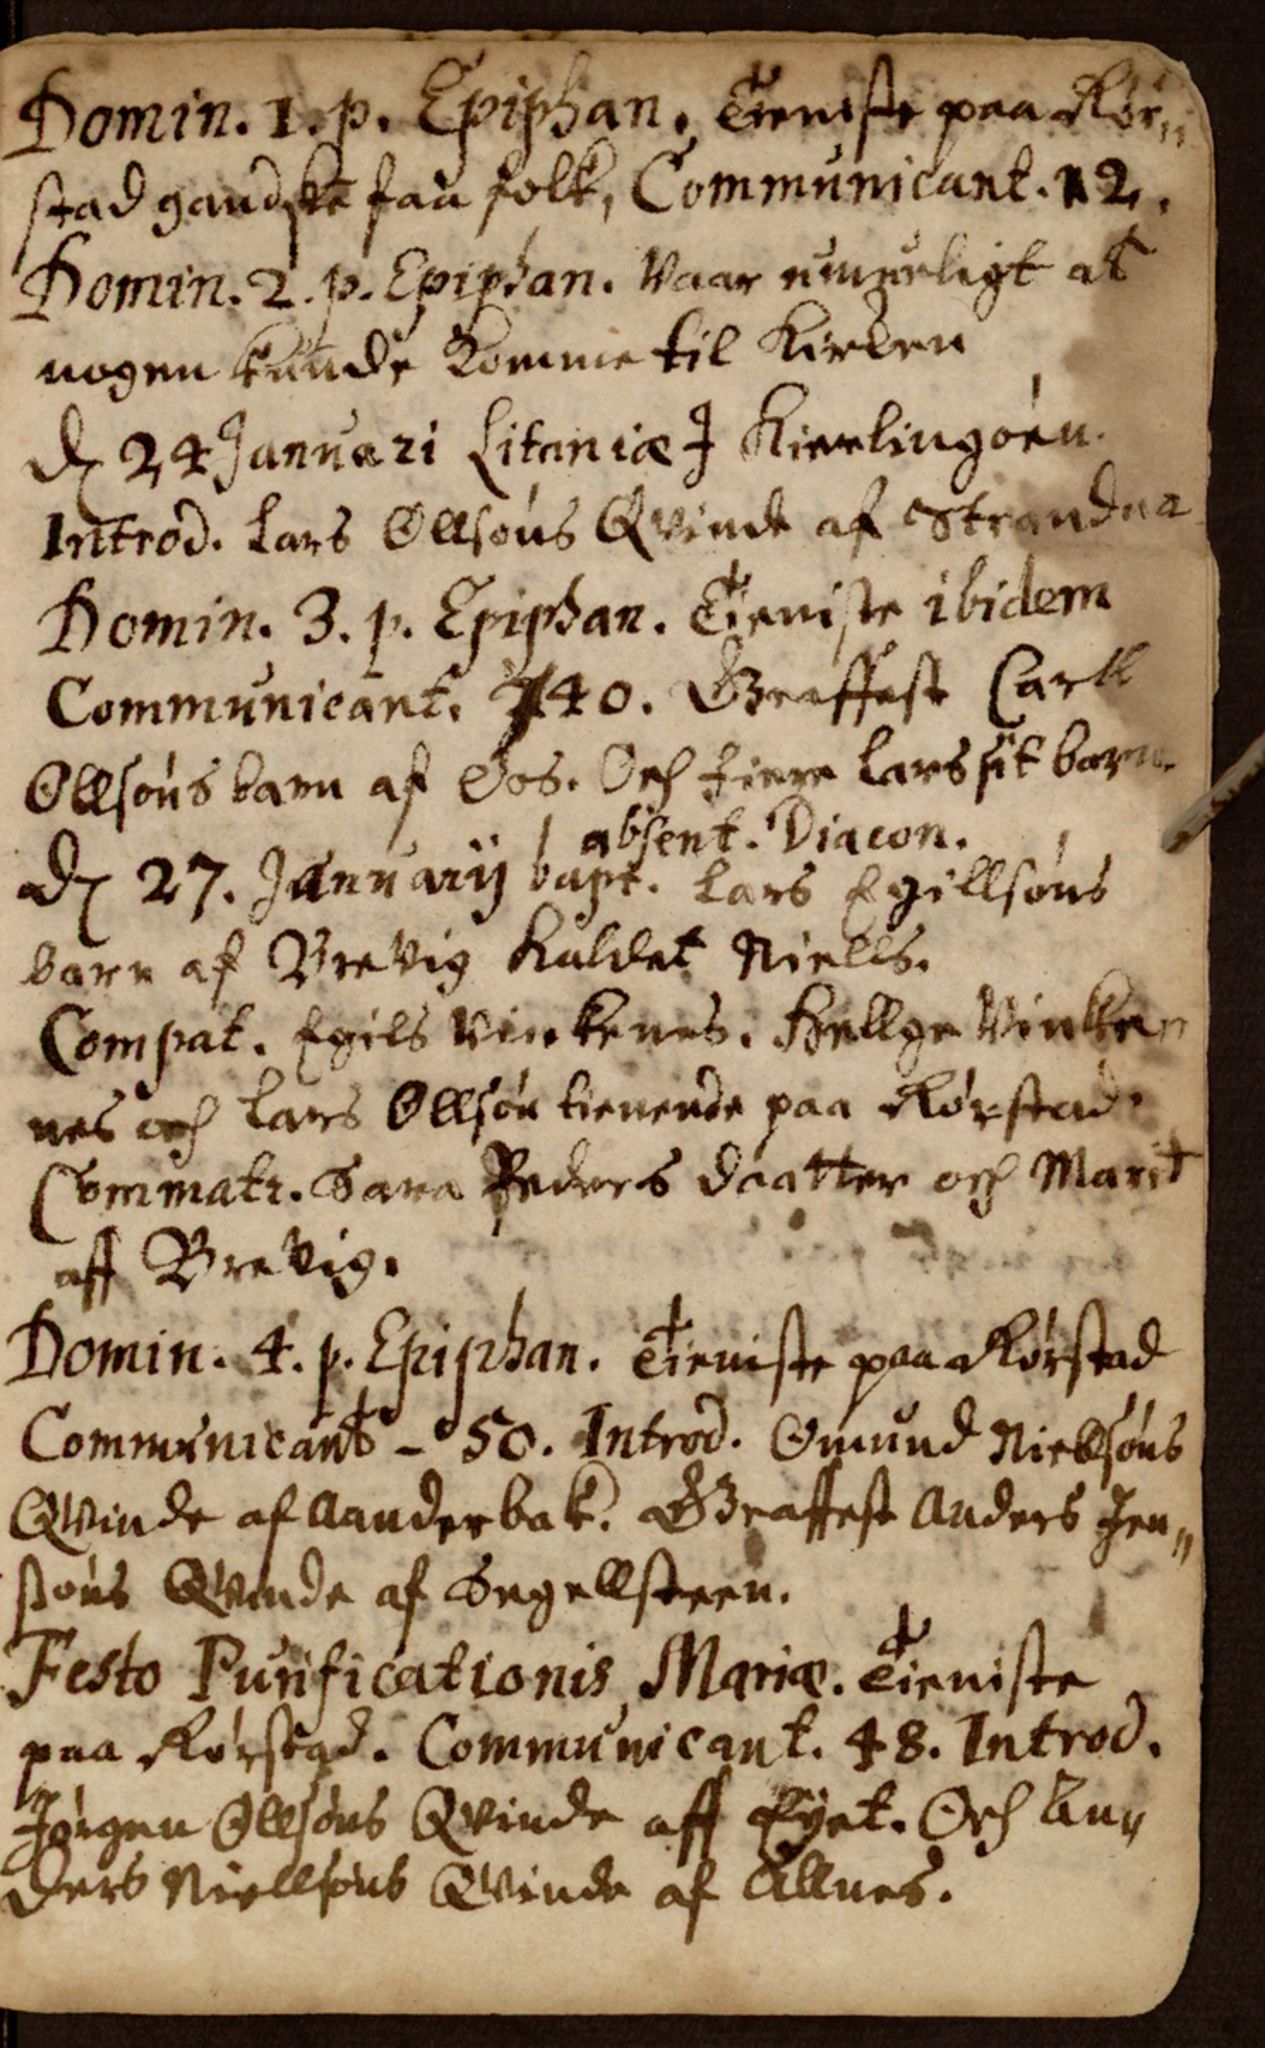 Domin. 1. p. Epiphan. Tieniste paa Rør„
stad gandske faa folk, Communicant. 12.
Domin. 2. p. Epiphan. Vaar umueligt at
nogen kunde komme til Kirken
d. 24 Januari Litaniæ I Kierlingøen.
Introd. Lars Ollsøns Qvinde af Strandna
Domin. 3. p. Epiphan. Tieniste ibidem
Communicant. 140. Graffest Carll
Ollsøns barn af Oos. Och Lars sit barn.
absent. Diacon.
d. 27. Januarij bapt. Lars Egillsøns
barn af Brevig kaldet Niells.
Compat. Egils Vinkenes. Hellge Vinken
nes och Lars Ollsøn tienende paa Rørstad.
Commatr. Sara Peders daatter och Marit
aff Brevig.
Domin. 4. p. Epiphan. Tieniste paa Rørstad
Communicant – 50. Introd. Omund Niellsøns
Qvinde af Aanderbak. Graffest Anders Jen„
søns Qvinde af Segellsteen.
Festo Purificationis Mariæ. Tieniste
paa Rørstad. Communicant. 48. Introd.
Jørgen Ollsøns Qvinde aff Eyet. Och An„
ders Niellsøns Qvinde af Allnes.